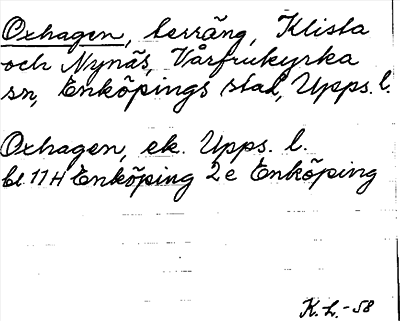 Oxhagen, terräng, Klista
och Nynäs, Vårfrukyrka
sn, Enköpings stad, Upps. l.
Oxhagen, ek. Upps. l.
bl 11H Enköping 2e Enköping
K. L. -58